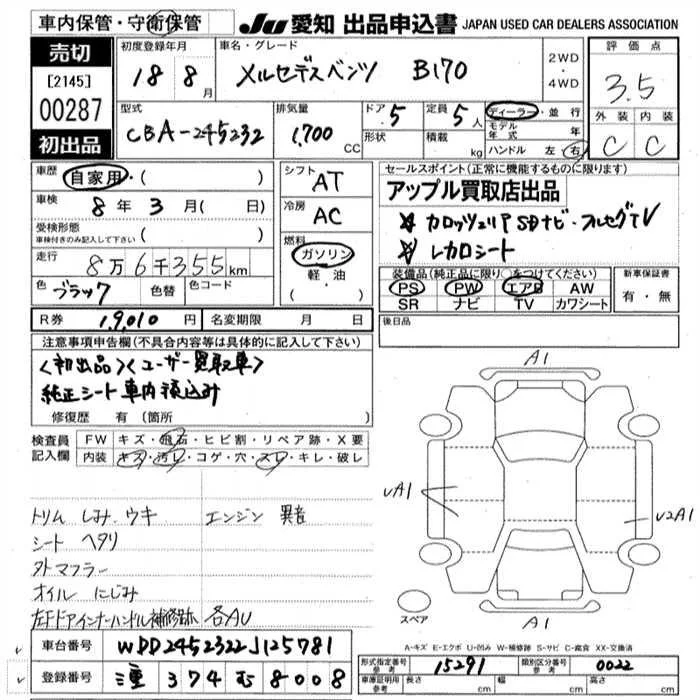 車内保管・守衛保管
JU 愛知 出品申込書 JAPAN USED CAR DEALERS ASSOCIATION
売切
[2145]
00287
初出品
初度登録年月
18 8月
車名・グレード
メルセデスベンツ B170
2WD
・
4WD
評価点
3.5
外装 内装
C C
型式
CBA-245232
排気量
1,700 CC
ドア 5
形状
定員 5人
積載 kg
ディーラー・並行
モデル年式 年
ハンドル 左 右
車歴
自家用・( )
車検
8年 3月 ( 日)
受検形態
車検付きのみ記入して下さい ( )
走行
8万6千355km
色 ブラック 色替 色コード
シフト
AT
冷房
AC
燃料
ガソリン
軽・油
・( )
セールスポイント(正常に機能するものに限ります)
アップル買取店出品
☆ カロッツェリア SDナビ・フルセグTV
☆ レカロシート
装備品(純正品に限り○をつけてください)
PS PW エアB AW
SR ナビ TV カワシート
新車保証書
有・無
後日品
R券 1,9,010円 名変期限 月 日
注意事項申告欄(不具合内容等は具体的に記入して下さい)
〈初出品〉〈ユーザー買取車〉
純正シート車内積込み
修復歴 有(箇所 )
検査員記入欄
FW キズ・飛石・ヒビ割・リペア跡・X要
内装 キズ・汚レ・コゲ・穴・スレ・キレ・破レ
トリム しみ.ウキ エンジン 異音
シート ヘタリ
外マフラー
オイル にじみ
左Fドアインナーハンドル補修跡 各AU
A1
UA1
U2A1
スペア
A1
A-キズ E-エクボ U-凹み W-補修跡 S-サビ C-腐食 XX-交換済
車台番号 WDD2452322J125781
登録番号 三重 374 む 8008
形式指定番号 参考 15291 類別区分番号 参考 0022
車庫証明用 参考 長さ cm 幅 cm 高さ cm